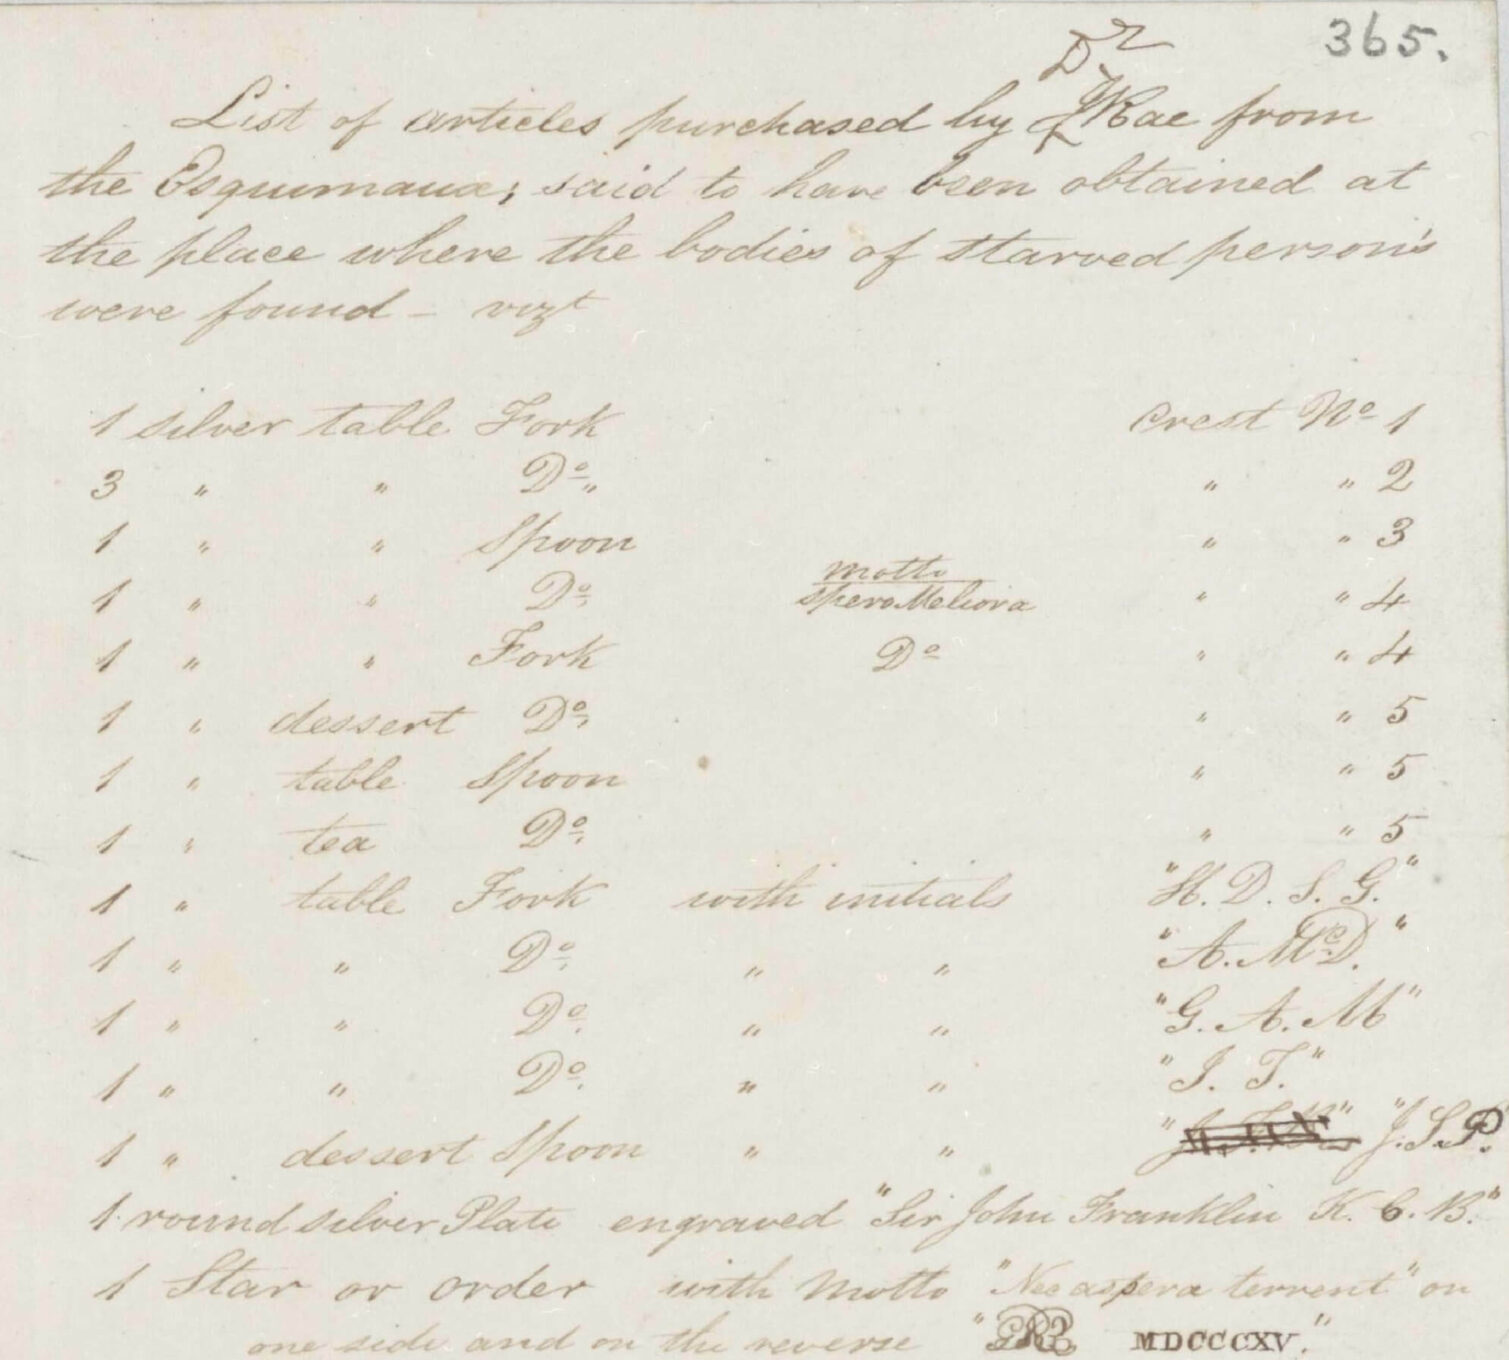 365.
Dr
List of articles purchased by Rae from
the Esquimaux; said to have been obtained at
the place where the bodies of starved person's
were found - vizt
1 silver table Fork Crest No 1
3 " " Do " " " 2
1 " " Spoon " " 3
motto
1 " " Do Spero Meliora " " 4
1 " " Fork Do " " 4
1 " dessert Do " " 5
1 " table Spoon " " 5
1 " tea Do " " 5
1 " table Fork with initials "H. D. S. G."
1 " " Do " " "A. McD."
1 " " Do " " "G. A. M"
1 " " Do " " "J. T."
1 " dessert Spoon " " "J. S. P.
1 round silver Plate engraved "Sir John Franklin K. C. B."
1 Star or order with Motto "Nec aspera terrent" on
one side and on the reverse " MDCCCXV."